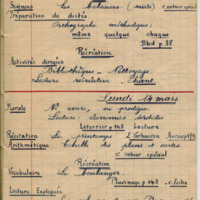 Sciences Les balances (suite) v. cahier spécial
Préparation de dictée
Orthographe méthodique:
même quelque chaque
Bled p 38
Récréation
Activités dirigées
Bibliothèque - Nettoyage
Lecture récréative - Chant
Lundi 14 mars
Morale N° cours, ni pratique
Lecture: économies sordides
Letterrier p 143 Lecture
Récitation Le printemps
Arithmétique Echelle des plans et cartes
v. cahier spécial
Récréation
Vocabulaire Le boulanger
Plurivage p 143 v. fiche
Lecture Expliquée